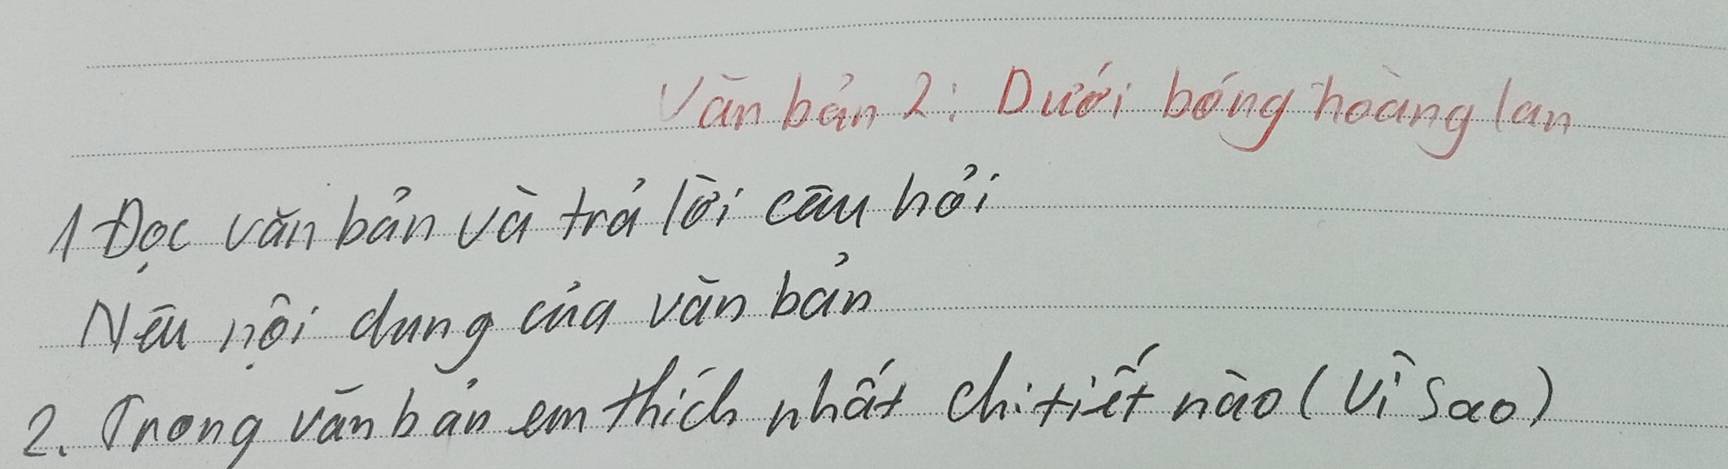 Văn bản 2: Dưới bóng hoàng lan
1 Đọc văn bản và trả lời câu hỏi
Nêu nội dung của văn bản
2. Trong văn bản em thích nhất chi tiết nào (Vì sao)